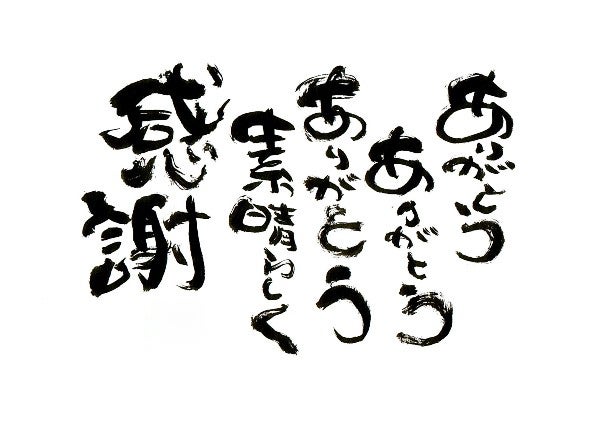 ありがとう
ありがとう
ありがとう
素晴らしく
感謝